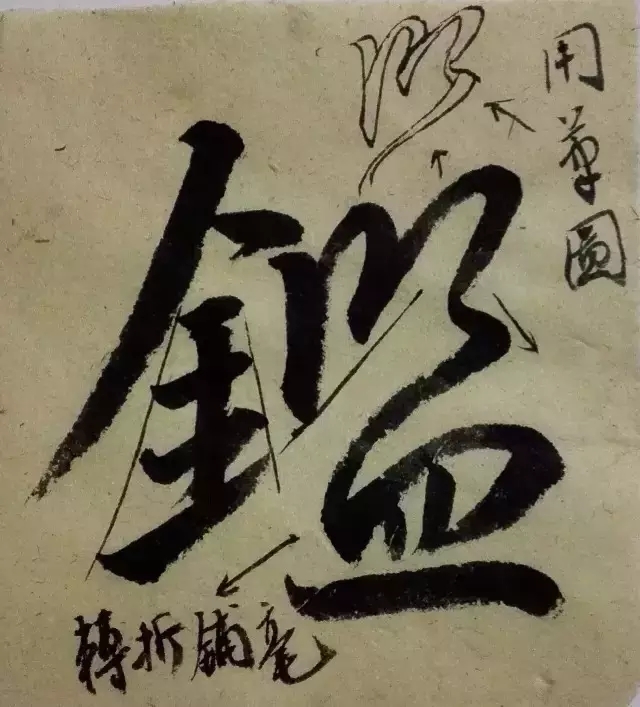 用筆圖
鑑
轉折鋪毫